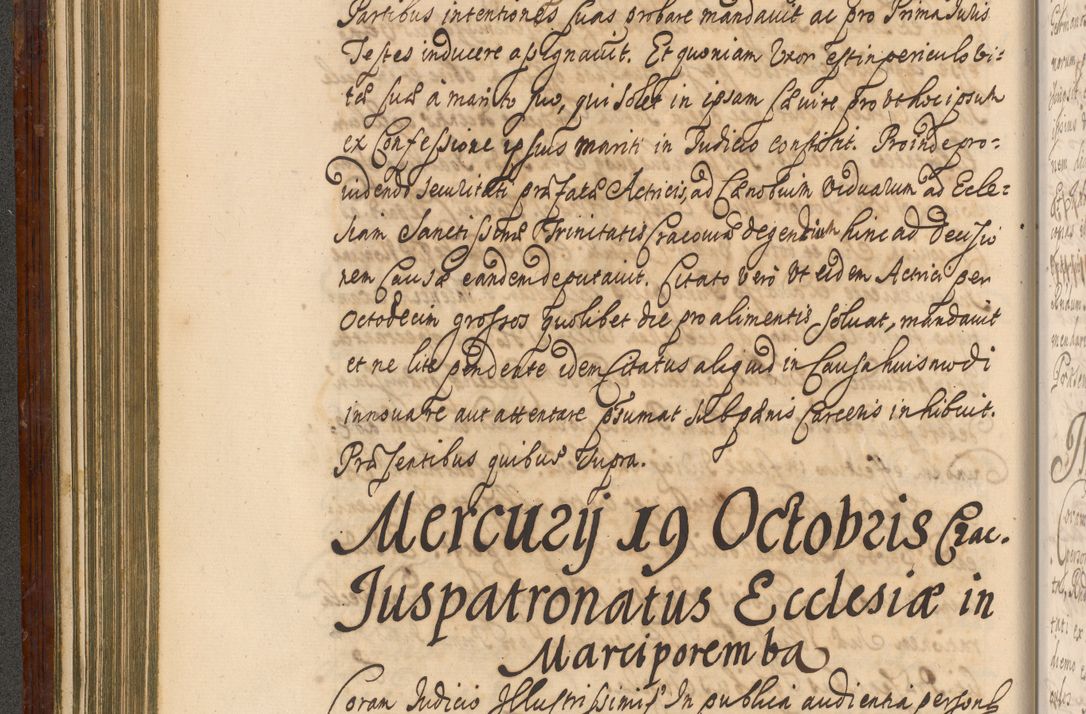 Partibus intentiones suas probare mandavit ac pro Prima Iuris
Testes inducere assignavit. Et quoniam Uxor est in periculo vi-
tæ suæ a marito suo, qui solet in ipsam sævire pro ut hoc ipsum
ex Confessione ipsius mariti in Iudicio constitit. Proinde pro-
videndo securitati præfatæ Actricis, ad Cænobium Viduarum ad Eccle-
siam Sanctissimæ Trinitatis Cracoviæ degentium hinc ad decisio
nem Causæ eandem deputavit. Citato vero Ut eidem Actrici per
Octodecim grossos quolibet die pro alimentis solvat, mandavit
et ne lite pendente idem Citatus aliquid in Causa huiusmodi
innovare aut attentare præsumat sub pænis Carceris inhibuit.
Præsentibus quibus supra.
Mercurij 19 Octobris Crac.
Iuspatronatus Ecclesiæ in
Marciporemba
Coram Iudicio Illustrissimi In publica audientia